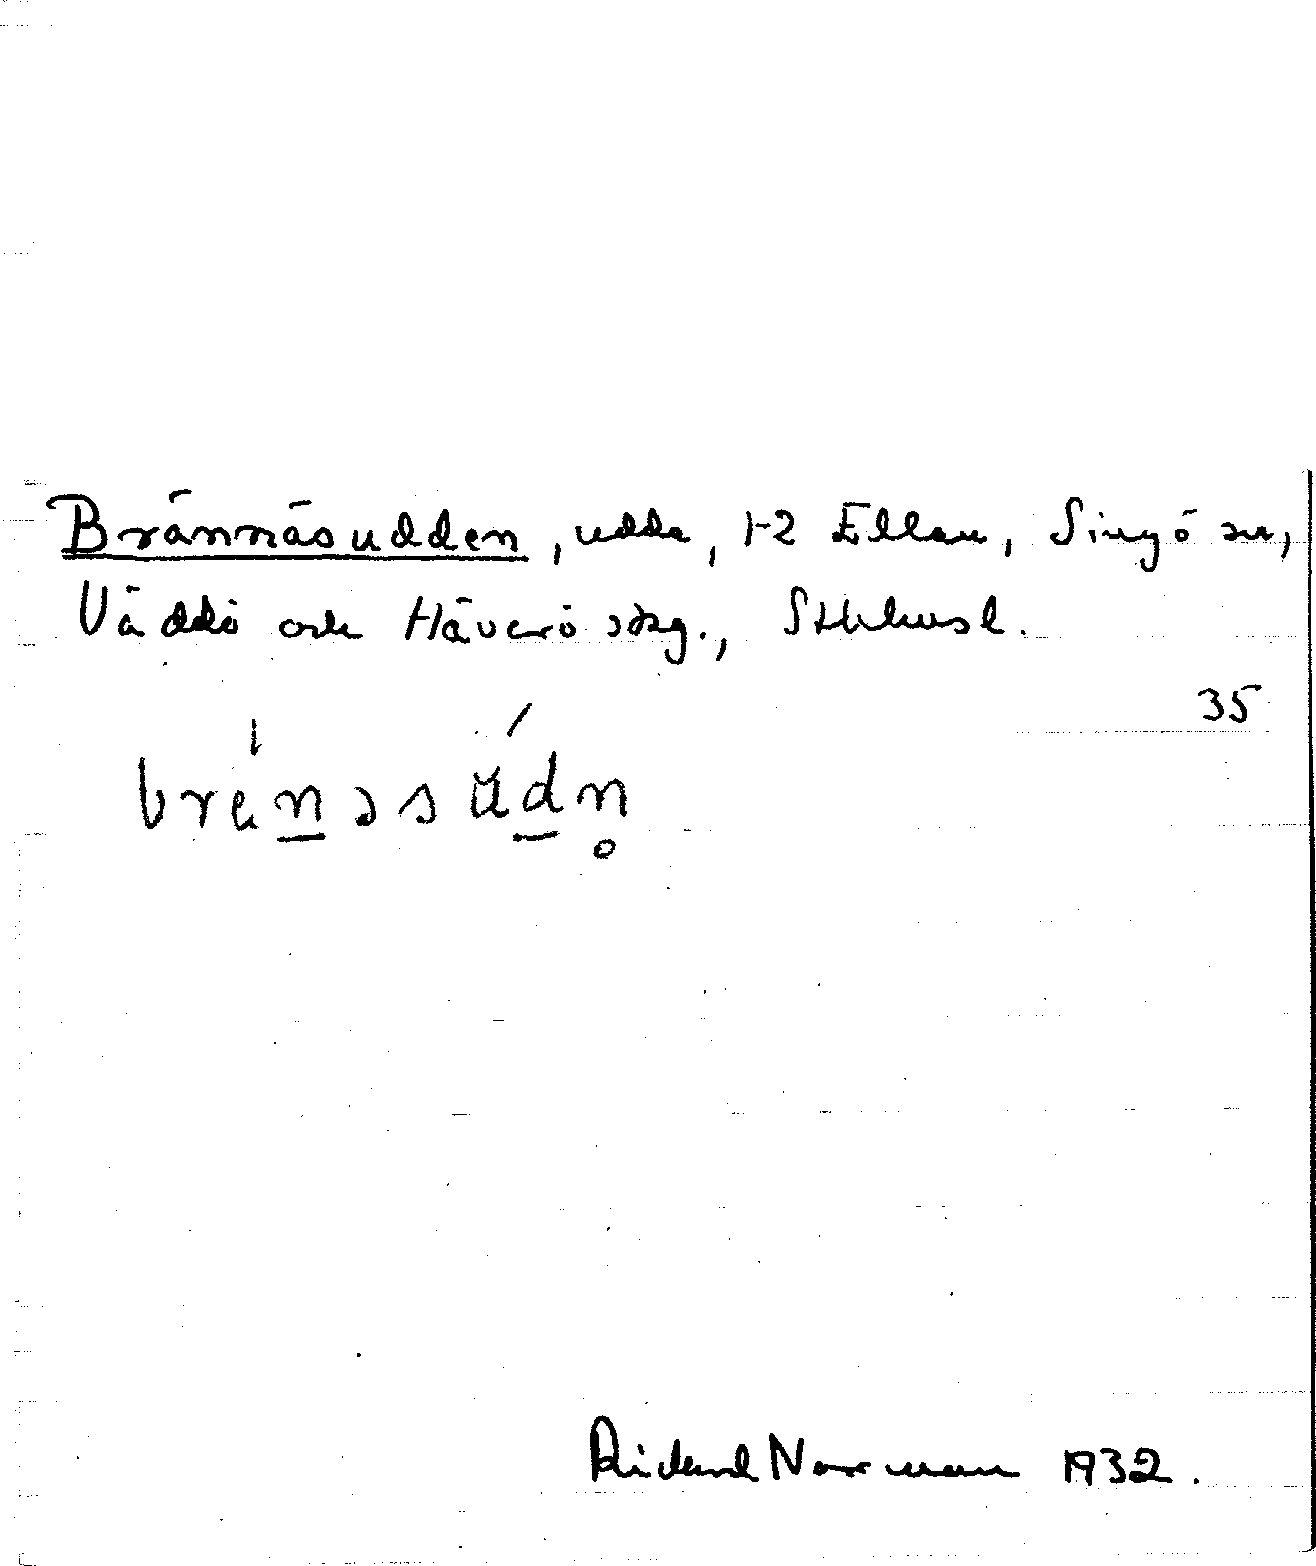 Brännäsudden, udde, 1-2 Ellan, Singö sn,
Väddö och Häverö skg., Sthlmsl.
35
brènəsúdn̥
Rickard Norrman 1932.